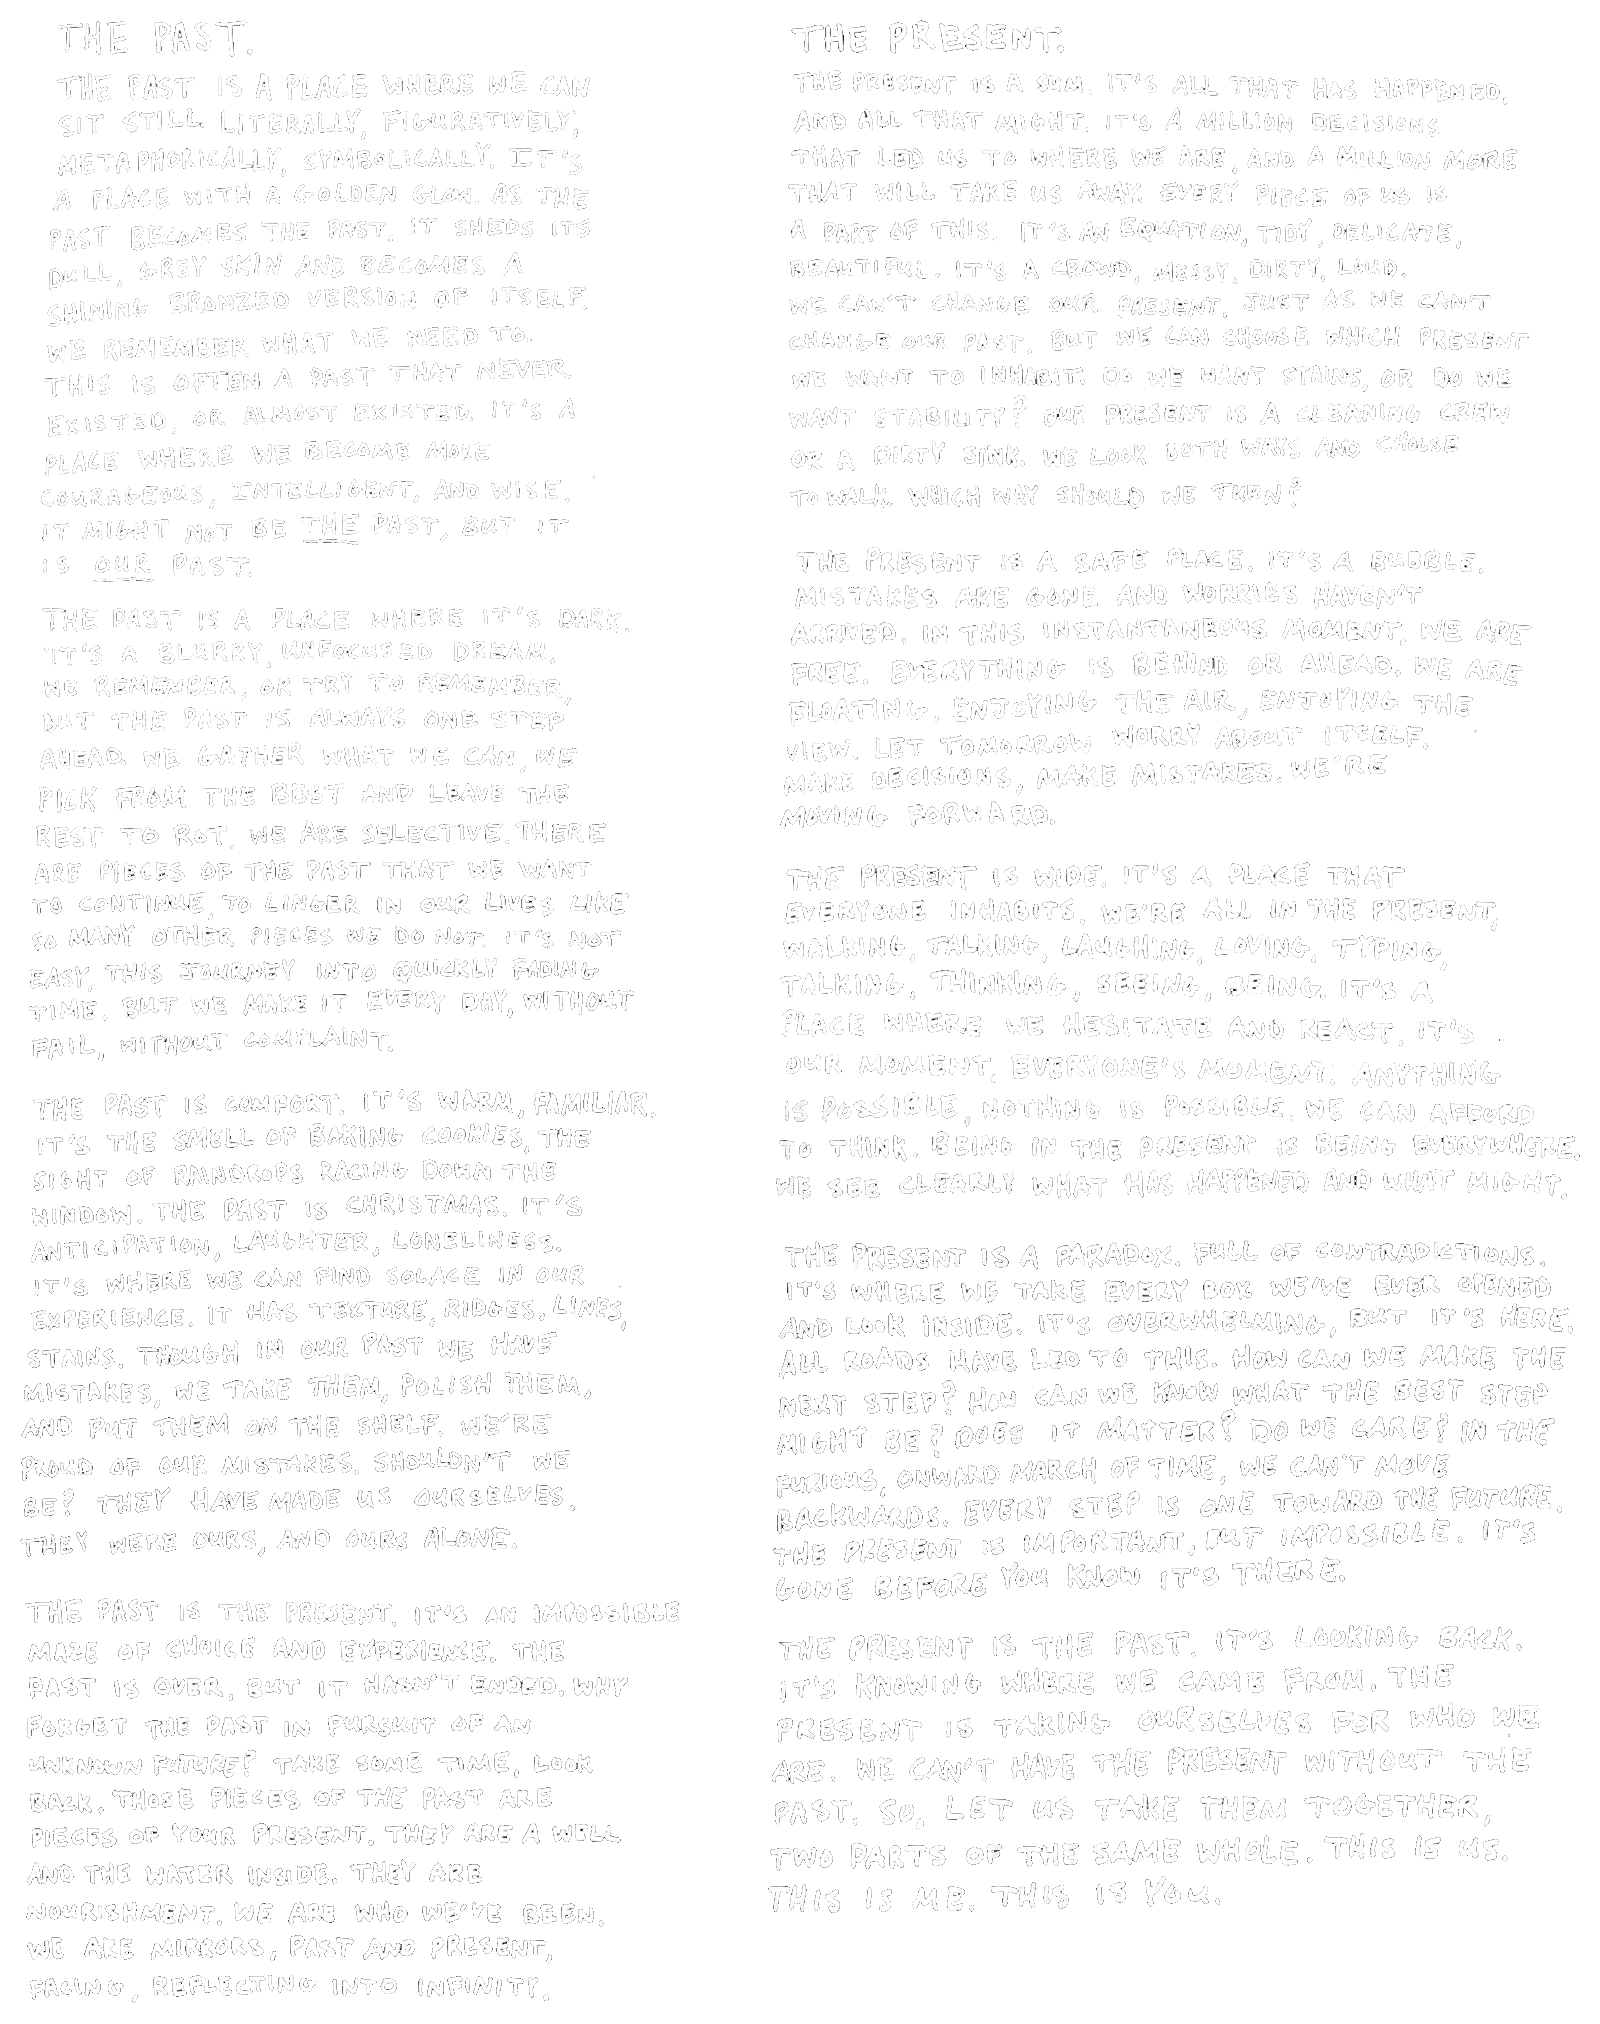 THE PAST.
THE PAST IS A PLACE WHERE WE CAN
SIT STILL. LITERALLY, FIGURATIVELY,
METAPHORICALLY, SYMBOLICALLY. IT'S
A PLACE WITH A GOLDEN GLOW. AS THE
PAST BECOMES THE PAST, IT SHEDS ITS
DULL, GREY SKIN AND BECOMES A
SHINING BRONZED VERSION OF ITSELF.
WE REMEMBER WHAT WE NEED TO.
THIS IS OFTEN A PAST THAT NEVER
EXISTED, OR ALMOST EXISTED. IT'S A
PLACE WHERE WE BECOME MORE
COURAGEOUS, INTELLIGENT, AND WISE.
IT MIGHT NOT BE THE PAST, BUT IT
IS OUR PAST.
THE PAST IS A PLACE WHERE IT'S DARK.
IT'S A BLURRY, UNFOCUSED DREAM.
WE REMEMBER, OR TRY TO REMEMBER,
BUT THE PAST IS ALWAYS ONE STEP
AHEAD. WE GATHER WHAT WE CAN, WE
PICK FROM THE BEST AND LEAVE THE
REST TO ROT. WE ARE SELECTIVE. THERE
ARE PIECES OF THE PAST THAT WE WANT
TO CONTINUE, TO LINGER IN OUR LIVES LIKE
SO MANY OTHER PIECES WE DO NOT. IT'S NOT
EASY, THIS JOURNEY INTO QUICKLY FADING
TIME. BUT WE MAKE IT EVERY DAY, WITHOUT
FAIL, WITHOUT COMPLAINT.
THE PAST IS COMFORT. IT'S WARM, FAMILIAR.
IT'S THE SMELL OF BAKING COOKIES, THE
SIGHT OF RAINDROPS RACING DOWN THE
WINDOW. THE PAST IS CHRISTMAS. IT'S
ANTICIPATION, LAUGHTER, LONELINESS.
IT'S WHERE WE CAN FIND SOLACE IN OUR
EXPERIENCE. IT HAS TEXTURE, RIDGES, LINES,
STAINS. THOUGH IN OUR PAST WE HAVE
MISTAKES, WE TAKE THEM, POLISH THEM,
AND PUT THEM ON THE SHELF. WE'RE
PROUD OF OUR MISTAKES. SHOULDN'T WE
BE? THEY HAVE MADE US OURSELVES.
THEY WERE OURS, AND OURS ALONE.
THE PAST IS THE PRESENT. IT'S AN IMPOSSIBLE
MAZE OF CHOICE AND EXPERIENCE. THE
PAST IS OVER, BUT IT HASN'T ENDED. WHY
FORGET THE PAST IN PURSUIT OF AN
UNKNOWN FUTURE? TAKE SOME TIME, LOOK
BACK. THOSE PIECES OF THE PAST ARE
PIECES OF YOUR PRESENT. THEY ARE A WELL
AND THE WATER INSIDE. THEY ARE
NOURISHMENT. WE ARE WHO WE'VE BEEN.
WE ARE MIRRORS, PAST AND PRESENT,
FACING, REFLECTING INTO INFINITY.
THE PRESENT.
THE PRESENT IS A SUM. IT'S ALL THAT HAS HAPPENED,
AND ALL THAT MIGHT. IT'S A MILLION DECISIONS
THAT LED US TO WHERE WE ARE, AND A MILLION MORE
THAT WILL TAKE US AWAY. EVERY PIECE OF US IS
A PART OF THIS. IT'S AN EQUATION, TIDY, DELICATE,
BEAUTIFUL. IT'S A CROWD, MESSY, DIRTY, LOUD.
WE CAN'T CHANGE OUR PRESENT, JUST AS WE CAN'T
CHANGE OUR PAST. BUT WE CAN CHOOSE WHICH PRESENT
WE WANT TO INHABIT. DO WE WANT STAINS, OR DO WE
WANT STABILITY? OUR PRESENT IS A CLEANING CREW
OR A DIRTY SINK. WE LOOK BOTH WAYS AND CHOOSE
TO WALK. WHICH WAY SHOULD WE TURN?
THE PRESENT IS A SAFE PLACE. IT'S A BUBBLE.
MISTAKES ARE GONE AND WORRIES HAVEN'T
ARRIVED. IN THIS INSTANTANEOUS MOMENT, WE ARE
FREE. EVERYTHING IS BEHIND OR AHEAD. WE ARE
FLOATING, ENJOYING THE AIR, ENJOYING THE
VIEW. LET TOMORROW WORRY ABOUT ITSELF.
MAKE DECISIONS, MAKE MISTAKES. WE'RE
MOVING FORWARD.
THE PRESENT IS WIDE. IT'S A PLACE THAT
EVERYONE INHABITS. WE'RE ALL IN THE PRESENT,
WALKING, TALKING, LAUGHING, LOVING, TYPING,
TALKING, THINKING, SEEING, BEING. IT'S A
PLACE WHERE WE HESITATE AND REACT. IT'S
OUR MOMENT, EVERYONE'S MOMENT. ANYTHING
IS POSSIBLE, NOTHING IS POSSIBLE. WE CAN AFFORD
TO THINK. BEING IN THE PRESENT IS BEING EVERYWHERE.
WE SEE CLEARLY WHAT HAS HAPPENED AND WHAT MIGHT.
THE PRESENT IS A PARADOX. FULL OF CONTRADICTIONS.
IT'S WHERE WE TAKE EVERY BOX WE'VE EVER OPENED
AND LOOK INSIDE. IT'S OVERWHELMING, BUT IT'S HERE.
ALL ROADS HAVE LED TO THIS. HOW CAN WE MAKE THE
NEXT STEP? HOW CAN WE KNOW WHAT THE BEST STEP
MIGHT BE? DOES IT MATTER? DO WE CARE? IN THE
FURIOUS, ONWARD MARCH OF TIME, WE CAN'T MOVE
BACKWARDS. EVERY STEP IS ONE TOWARD THE FUTURE.
THE PRESENT IS IMPORTANT, BUT IMPOSSIBLE. IT'S
GONE BEFORE YOU KNOW IT'S THERE.
THE PRESENT IS THE PAST. IT'S LOOKING BACK.
IT'S KNOWING WHERE WE CAME FROM. THE
PRESENT IS TAKING OURSELVES FOR WHO WE
ARE. WE CAN'T HAVE THE PRESENT WITHOUT THE
PAST. SO, LET US TAKE THEM TOGETHER,
TWO PARTS OF THE SAME WHOLE. THIS IS US.
THIS IS ME. THIS IS YOU.